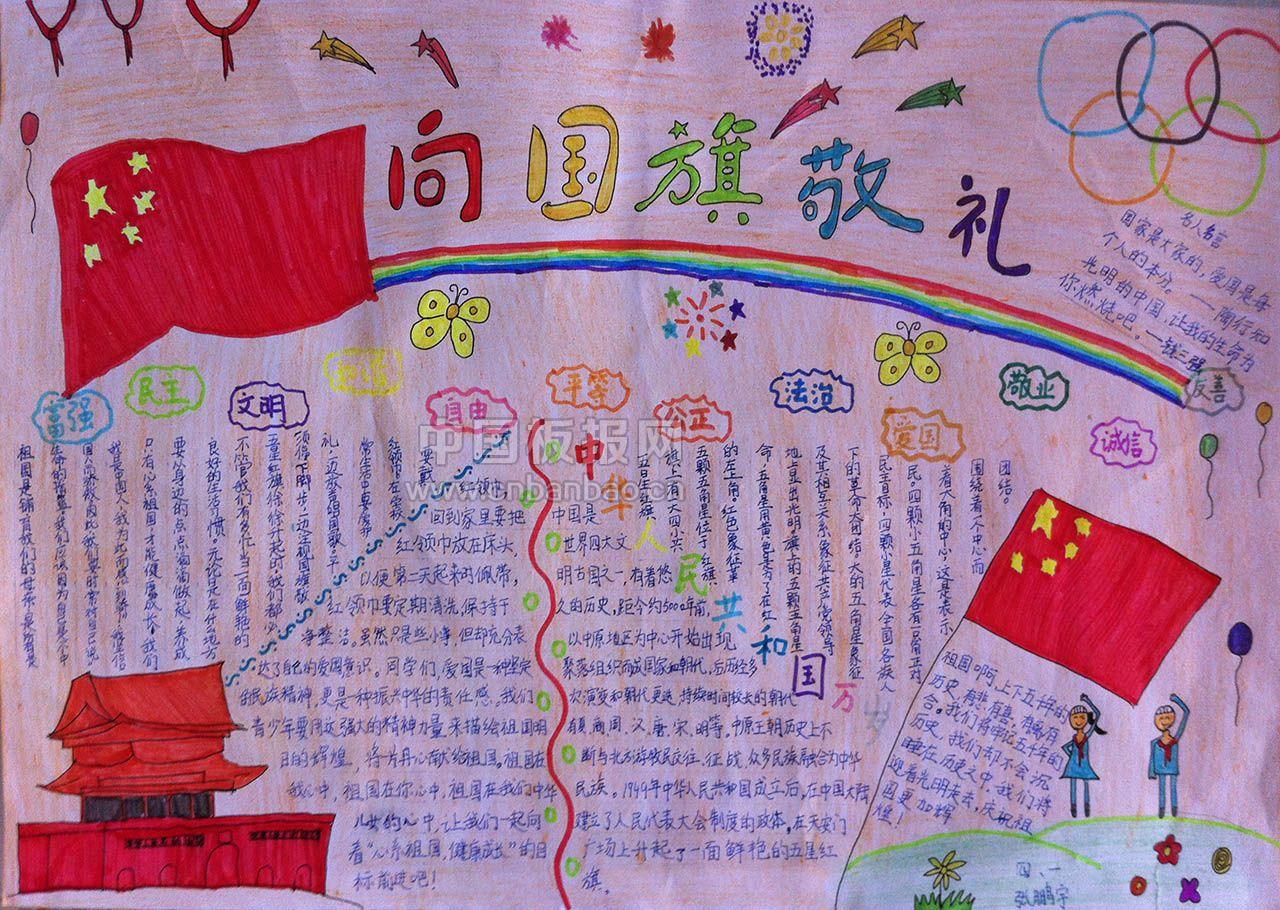 向国旗敬礼
名人名言
国家是大家的,爱国是每
个人的本分。——陶行知
光明的中国,让我的生命为
你燃烧吧。——钱三强
富强
民主
文明
和谐
自由
平等
公正
法治
爱国
敬业
诚信
友善
国人而骄傲,因此我们要时常对自己说:
我是中国人,我为此而感到骄傲。坚信
只有心系祖国才能健康成长。我们
要从身边的点点滴滴做起,养成
良好的生活习惯。无论是在什么地方
不管我们有多忙,当一面鲜艳的
五星红旗徐徐升起时我们都必
须停下脚步,一边注视国旗敬
礼,一边放声唱国歌。平
常生活中要爱护
红领巾,在学校
要戴
红领巾,
回到家里要把
红领巾放在床头,
以便第二天起来时佩带,
红领巾要定期清洗,保持干
净整洁。虽然只是些小事,但却充分表
达了自己的爱国意识。同学们,爱国是一种坚定
的民族精神,更是一种振兴中华的责任感。我们
青少年要用这强大的精神力量来描绘祖国明
日的辉煌,将一片丹心献给祖国。祖国在
我心中,祖国在你心中,祖国在我们中华
儿女的心中,让我们一起向
着“心系祖国,健康成长”的目
标前进吧!
中华人民共和国万岁
中国是
世界四大文
明古国之一,有着悠
久的历史,距今约5000年前,
以中原地区为中心开始出现
聚落组织而成国家和朝代,后历经多
次演变和朝代更迭,持续时间较长的朝代
有夏、商、周、汉、唐、宋、明等。中原王朝历史上不
断与北方游牧民交往、征战,众多民族融合为中华
民族。1949年中华人民共和国成立后,在中国大陆
建立了人民代表大会制度的政体。在天安门
广场上升起了一面鲜艳的五星红
旗。
五星红旗
旗上有大四小共
五颗五角星位于红旗
的左上角。红色象征革
命,五角星用黄色是为了在红
地上显出光明,旗上的五颗五角星
及其相互关系象征共产党领导
下的革命大团结。大的五角星象征
民主目标,四颗小星代表全国各族人
民。四颗小五角星各有一个角正对
着大角的中心,这是表示
围绕着一个中心而
团结。
祖国啊,上下五千的
历史,有悲、有喜、有祸、有
合。我们将牢记五千年的
历史,我们却不会沉
睡在历史之中,我们将
迎着光明走去,庆祝祖
国更加辉
煌!
四、一
张鹏宇
中国板报网
www.cnbanbao.cn